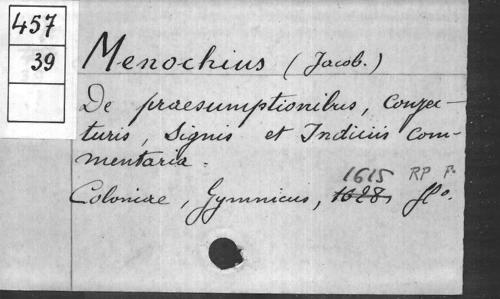 457
39
Menochius (Jacob.)
De praesumptionibus, conjec-
turis, Signis et Indiciis com-
mentaria.
1615 RP F.
Coloniae, Gymnicus, 1628 flo.